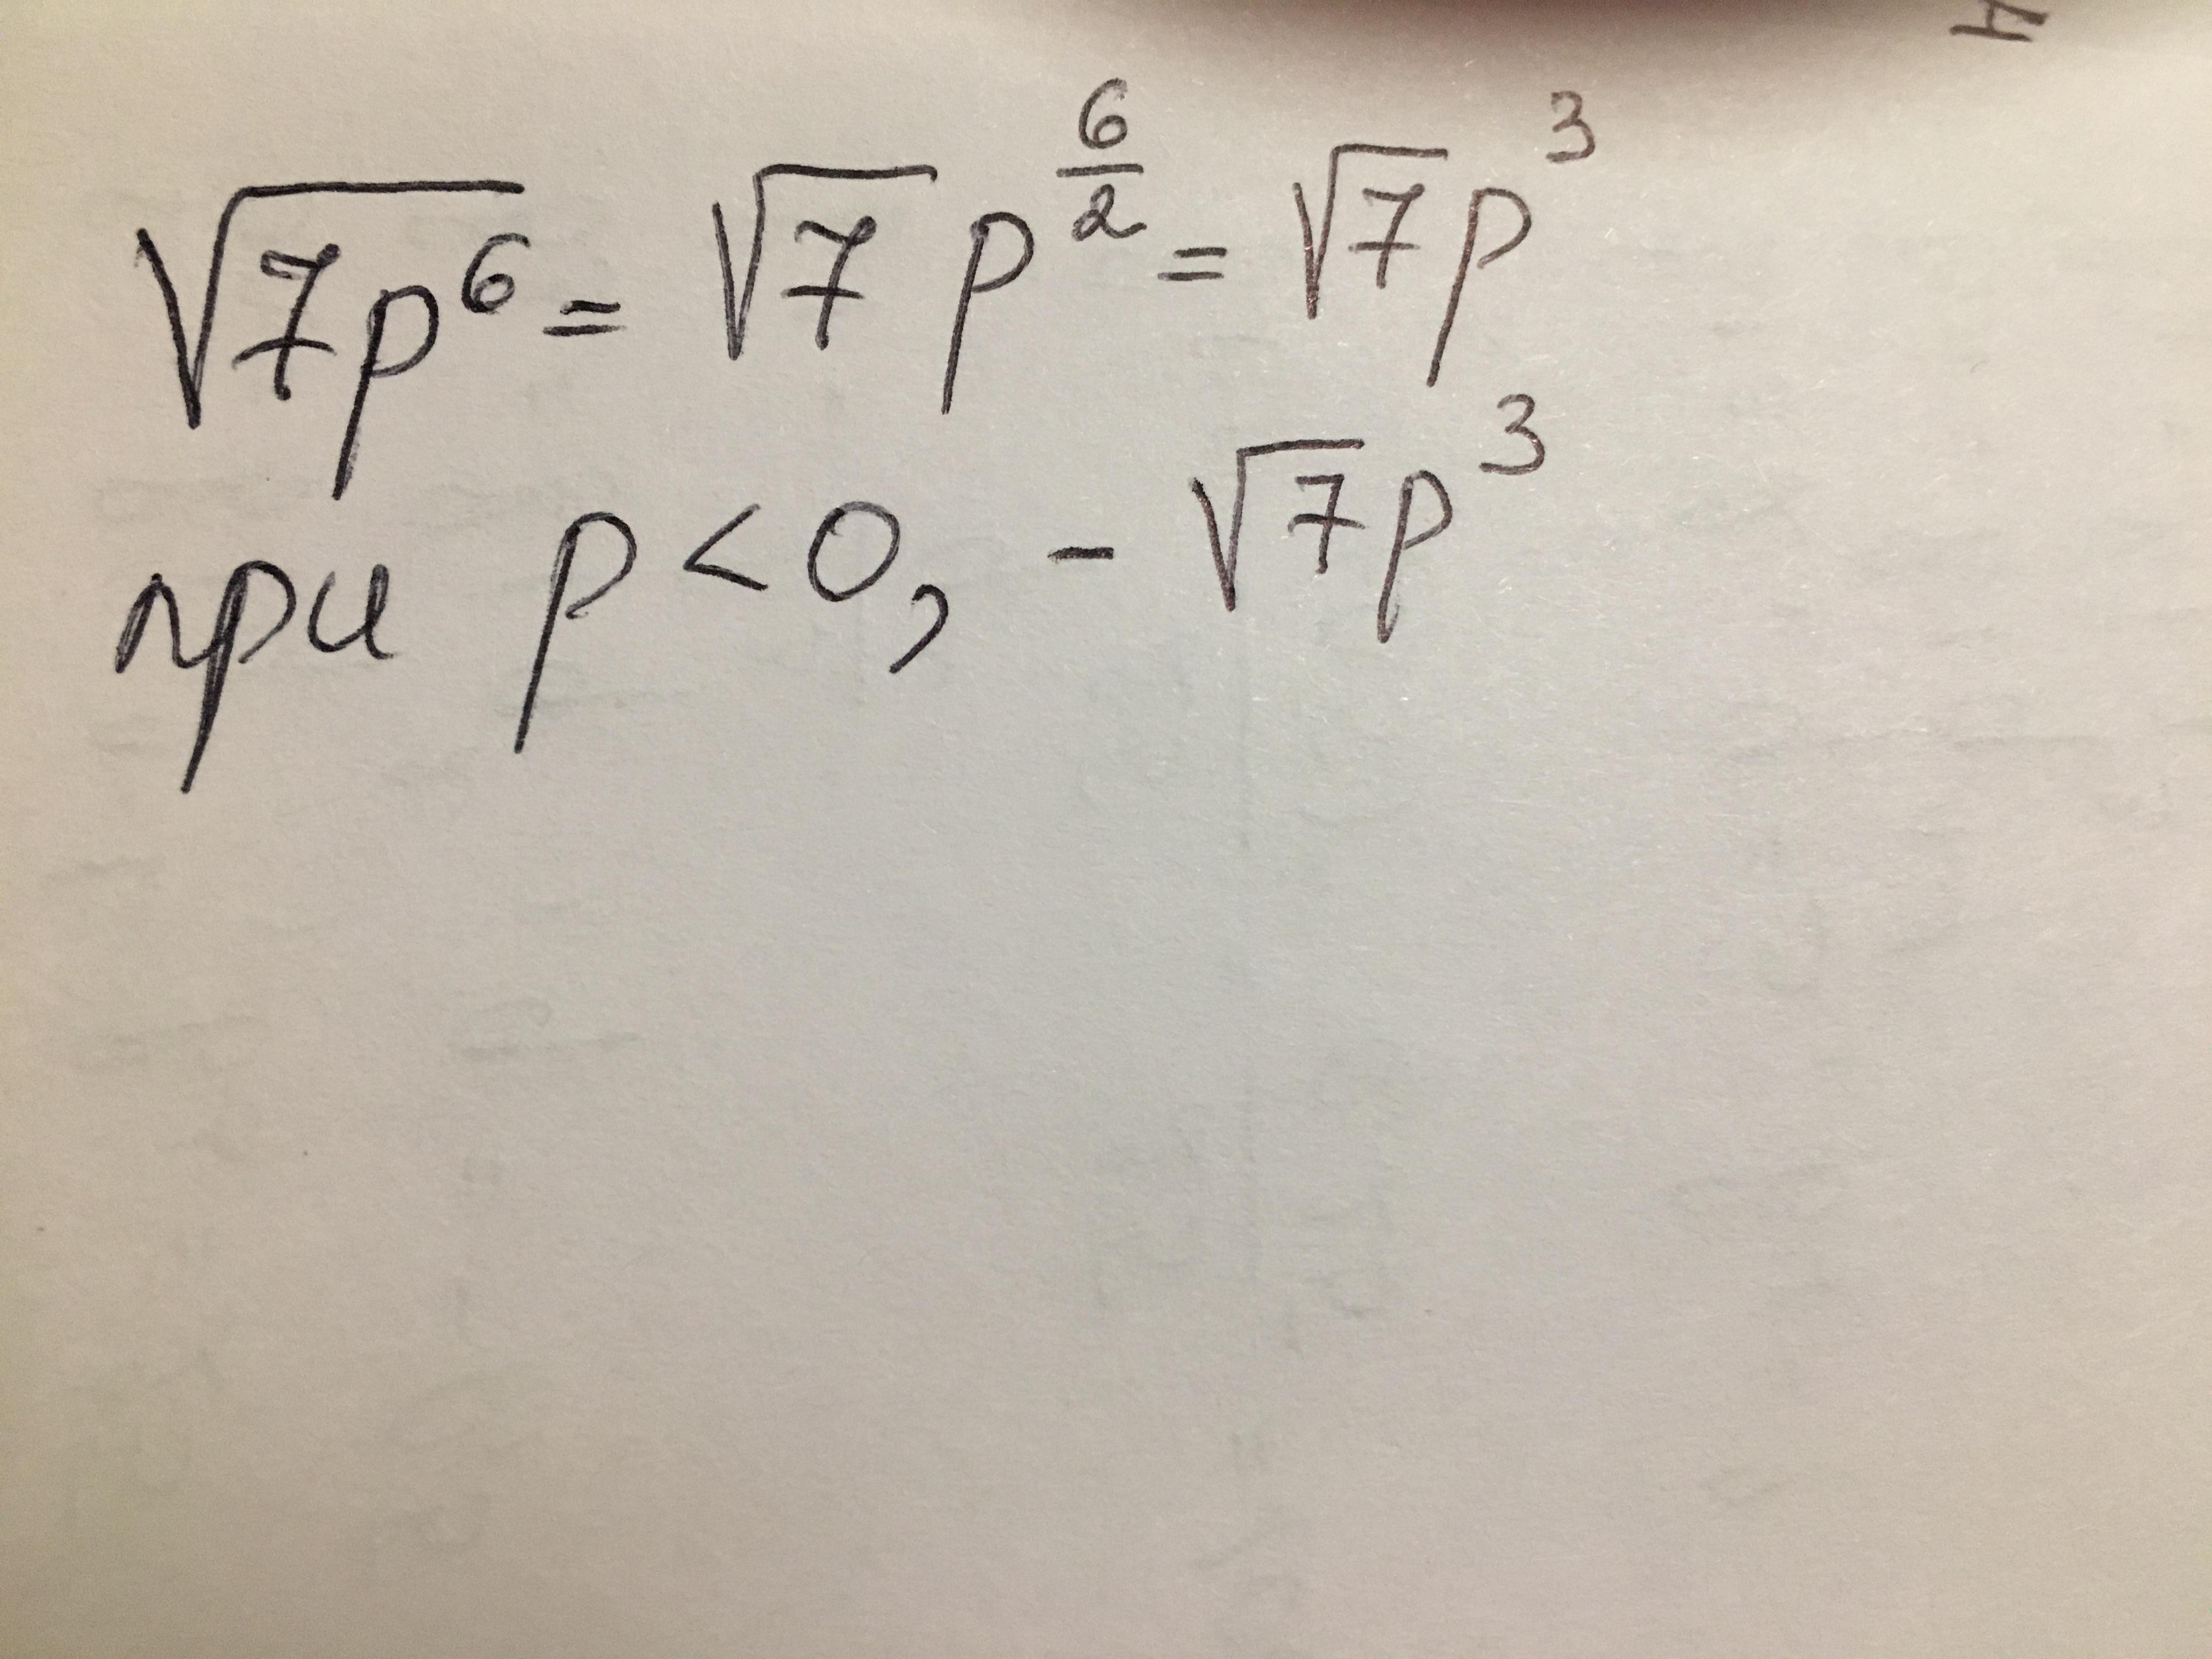 √7p⁶ = √7 p^(6/2) = √7 p³
при p < 0, - √7 p³